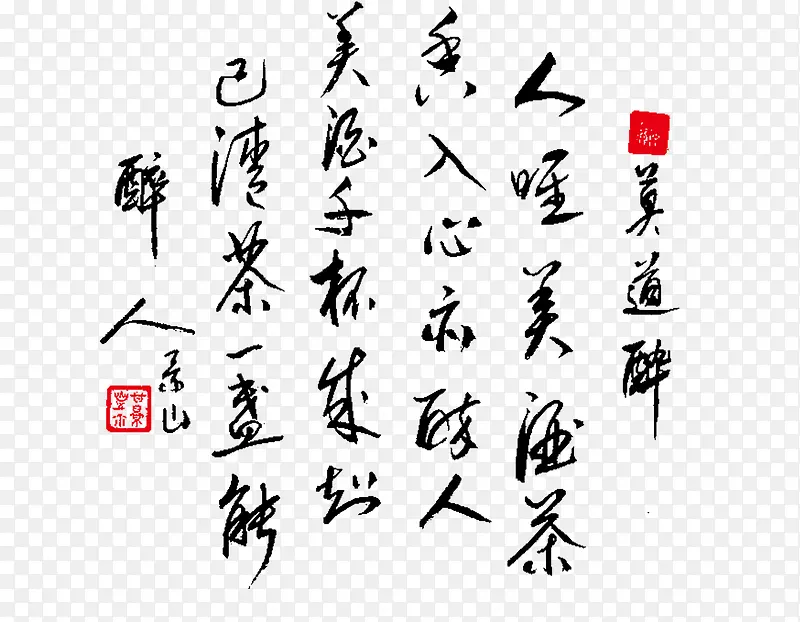 莫道醉
人唯美酒茶
香入心亦醉人
美酒千杯成知
己清茶一盏能
醉人
景山